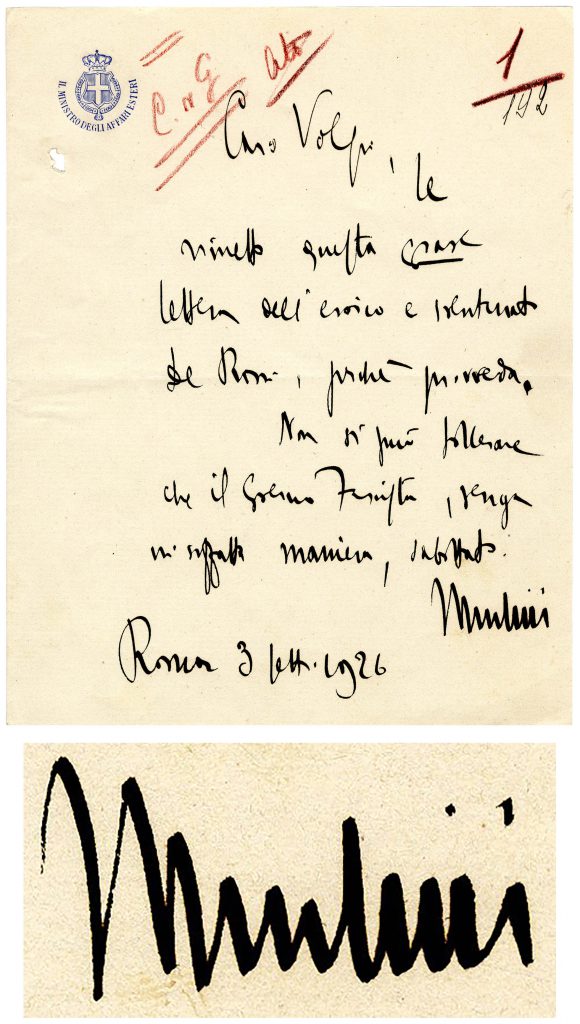 IL MINISTRO DEGLI AFFARI ESTERI
1
192
Caro Volpi, le
rimetto questa grave
lettera dell'eroico e sventurato
De Rossi, perché provveda.
Non si può tollerare
che il Governo Fascista, venga
in siffatta maniera, sabottato.
Mussolini
Roma 3 sett. 1926
Mussolini